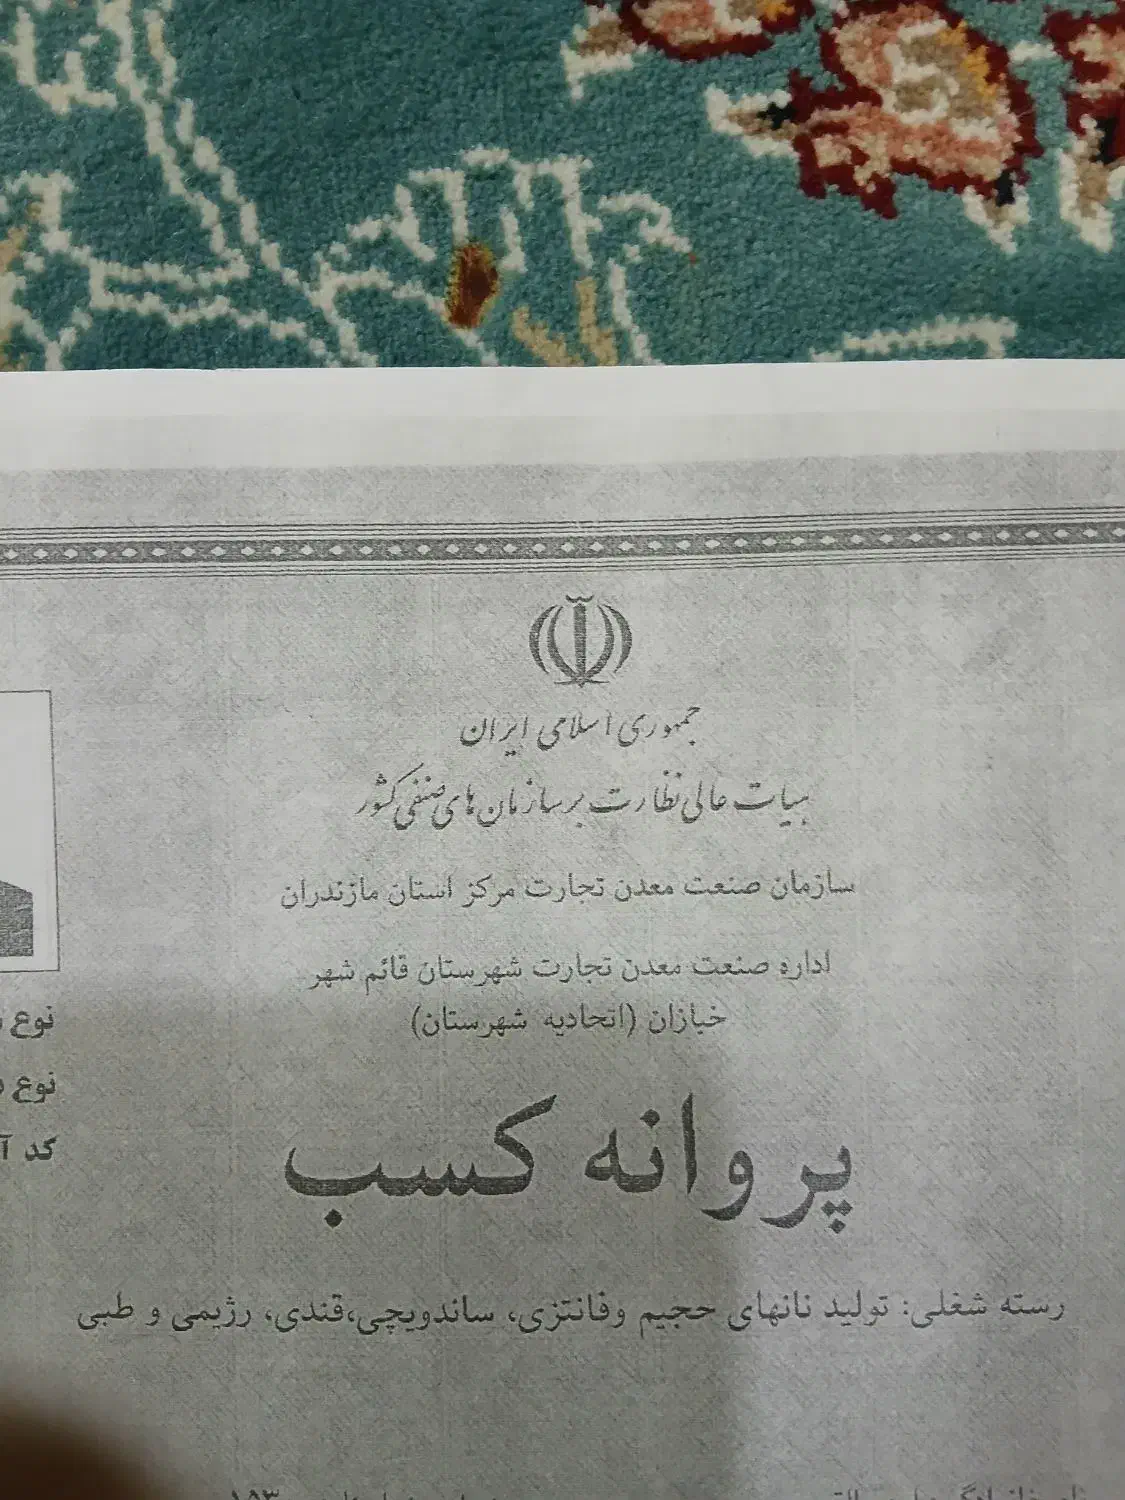 جمهوری اسلامی ایران
هیات عالی نظارت بر سازمان های صنفی کشور
سازمان صنعت معدن تجارت مرکز استان مازندران
اداره صنعت معدن تجارت شهرستان قائم شهر
خبازان (اتحادیه شهرستان)
نوع
نوع
کد
پروانه کسب
رسته شغلی: تولید نانهای حجیم وفانتزی، ساندویچی،قندی، رژیمی و طبی